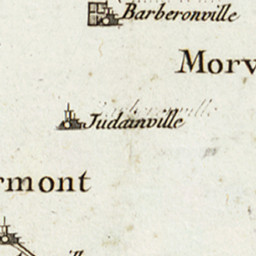 Barberonville
Morv
Judainville
rmont